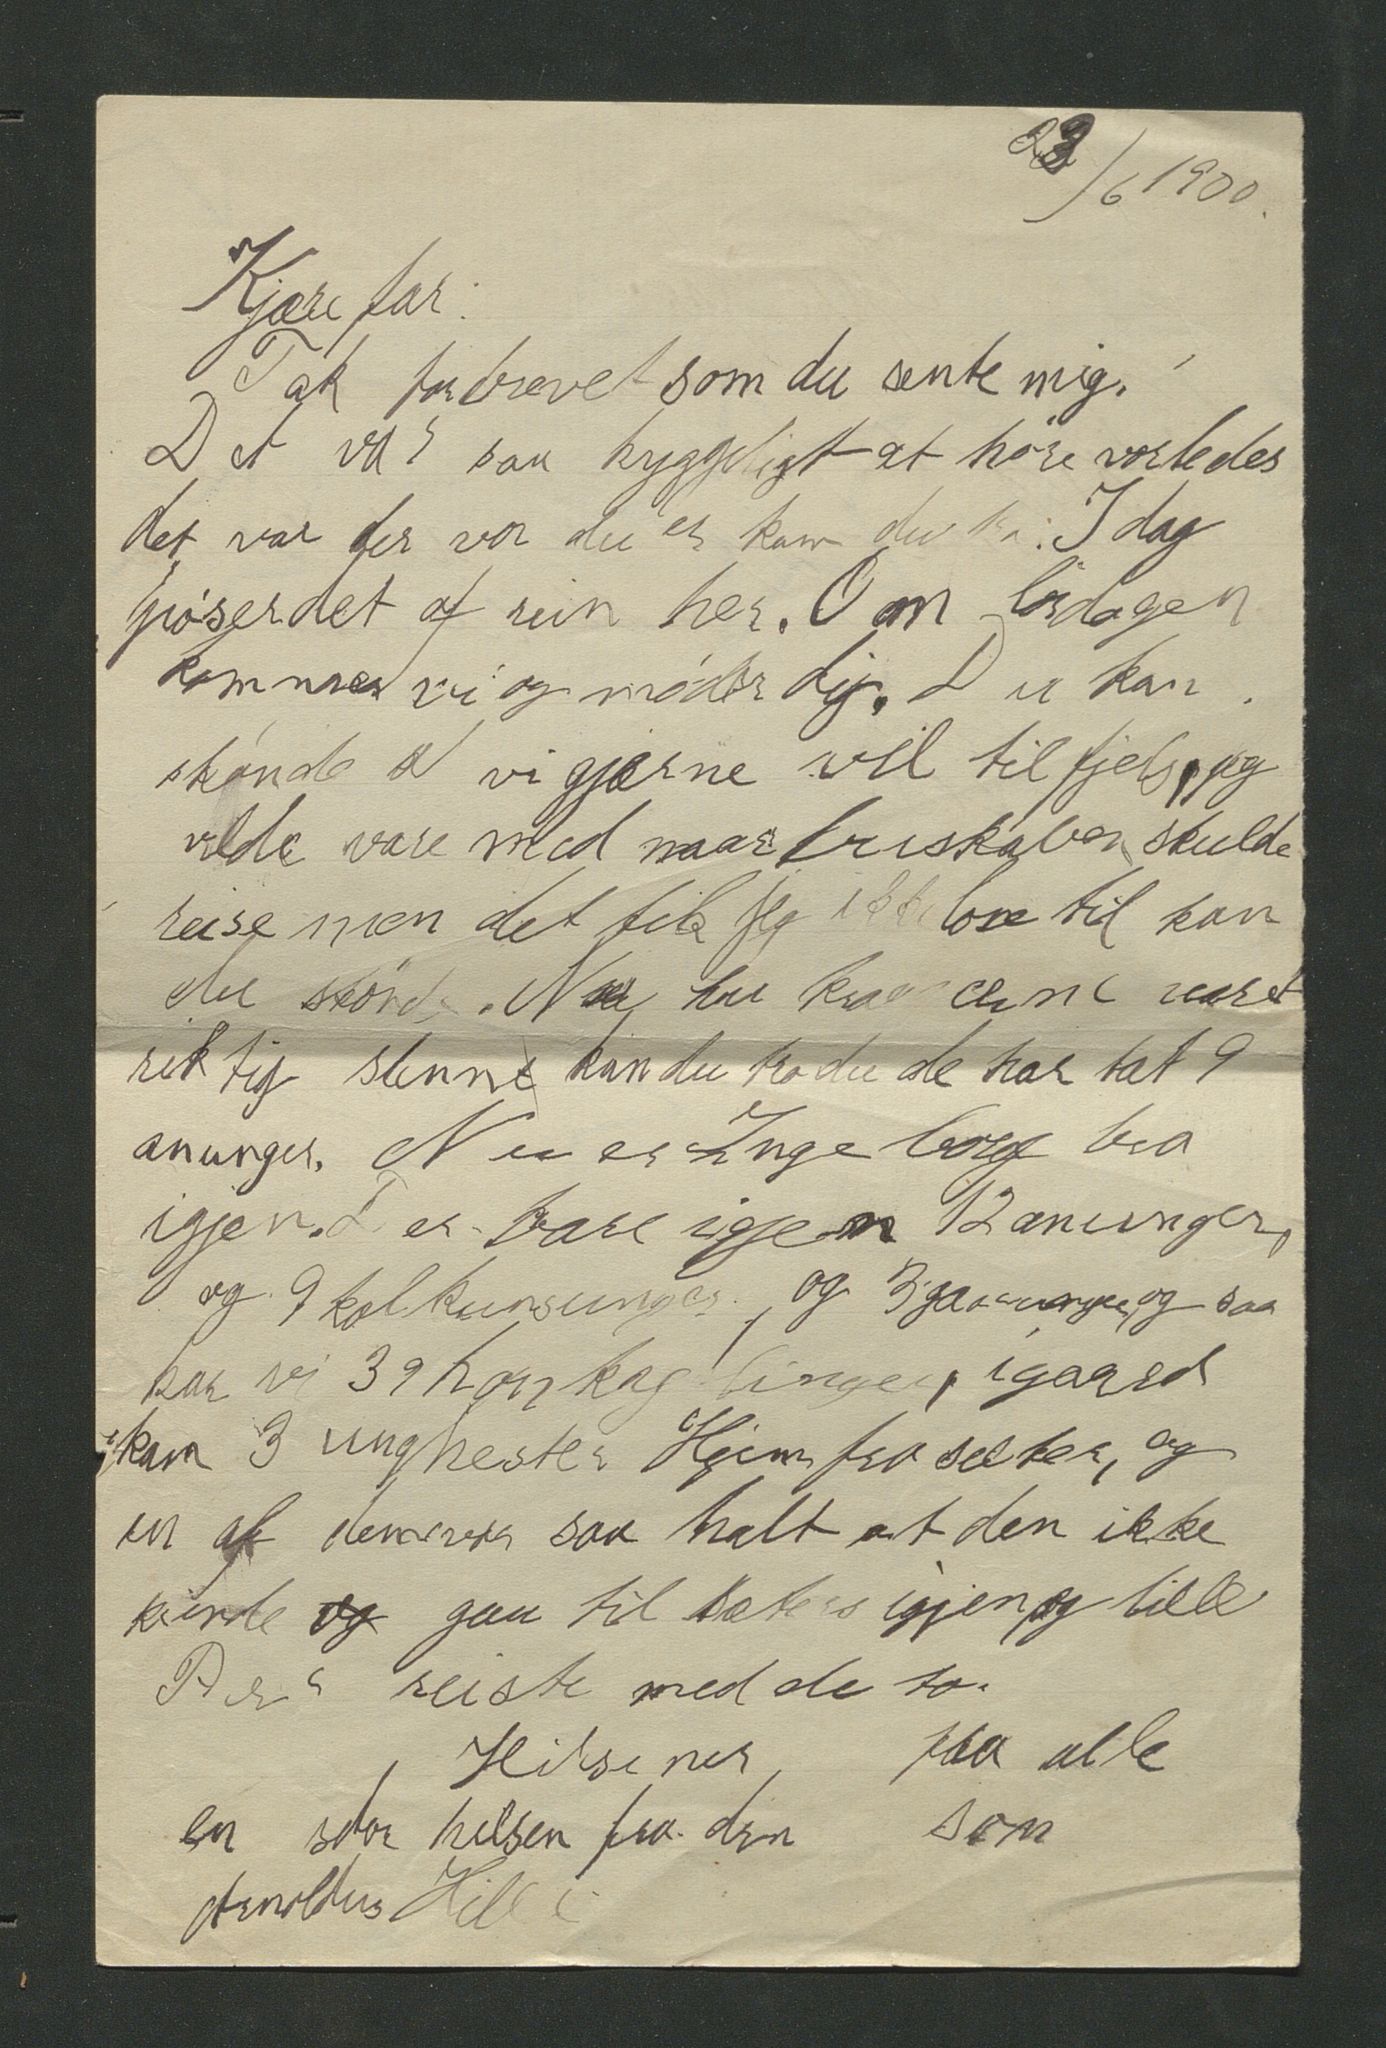 23/6 1900.
Kjære far:
Tak for brevet som du sente mig.
Det var saa hyggeligt at høre vorledes
det var der vor du er kan du tro. I dag
pøser det af rein her. Om lørdagen
kommer vi og møder dig. Du kan
skønde at vi gjærne vil til fjels, jeg
vilde være med naar buskaben skulde
reise men det fik jeg ikke lov til kan
du skønde. Nu har været
riktig slemme kan du tro du de har tat 9
anunger. Nu er Ingeborg bra
igjen. D er bare igjen 12 anunger,
og 9 kalkunsunger, og 3 gaasunger, og saa
har vi 39 kyllinger, igaard
kom 3 unghester Hjem fra sæter, og
en af dem var saa halt at den ikke
kunde og gaa til sæters igjen, og lille
Per reiste med de to.
Hilsener fra alle
en stor hilsen fra din søn
Arnoldus Hille